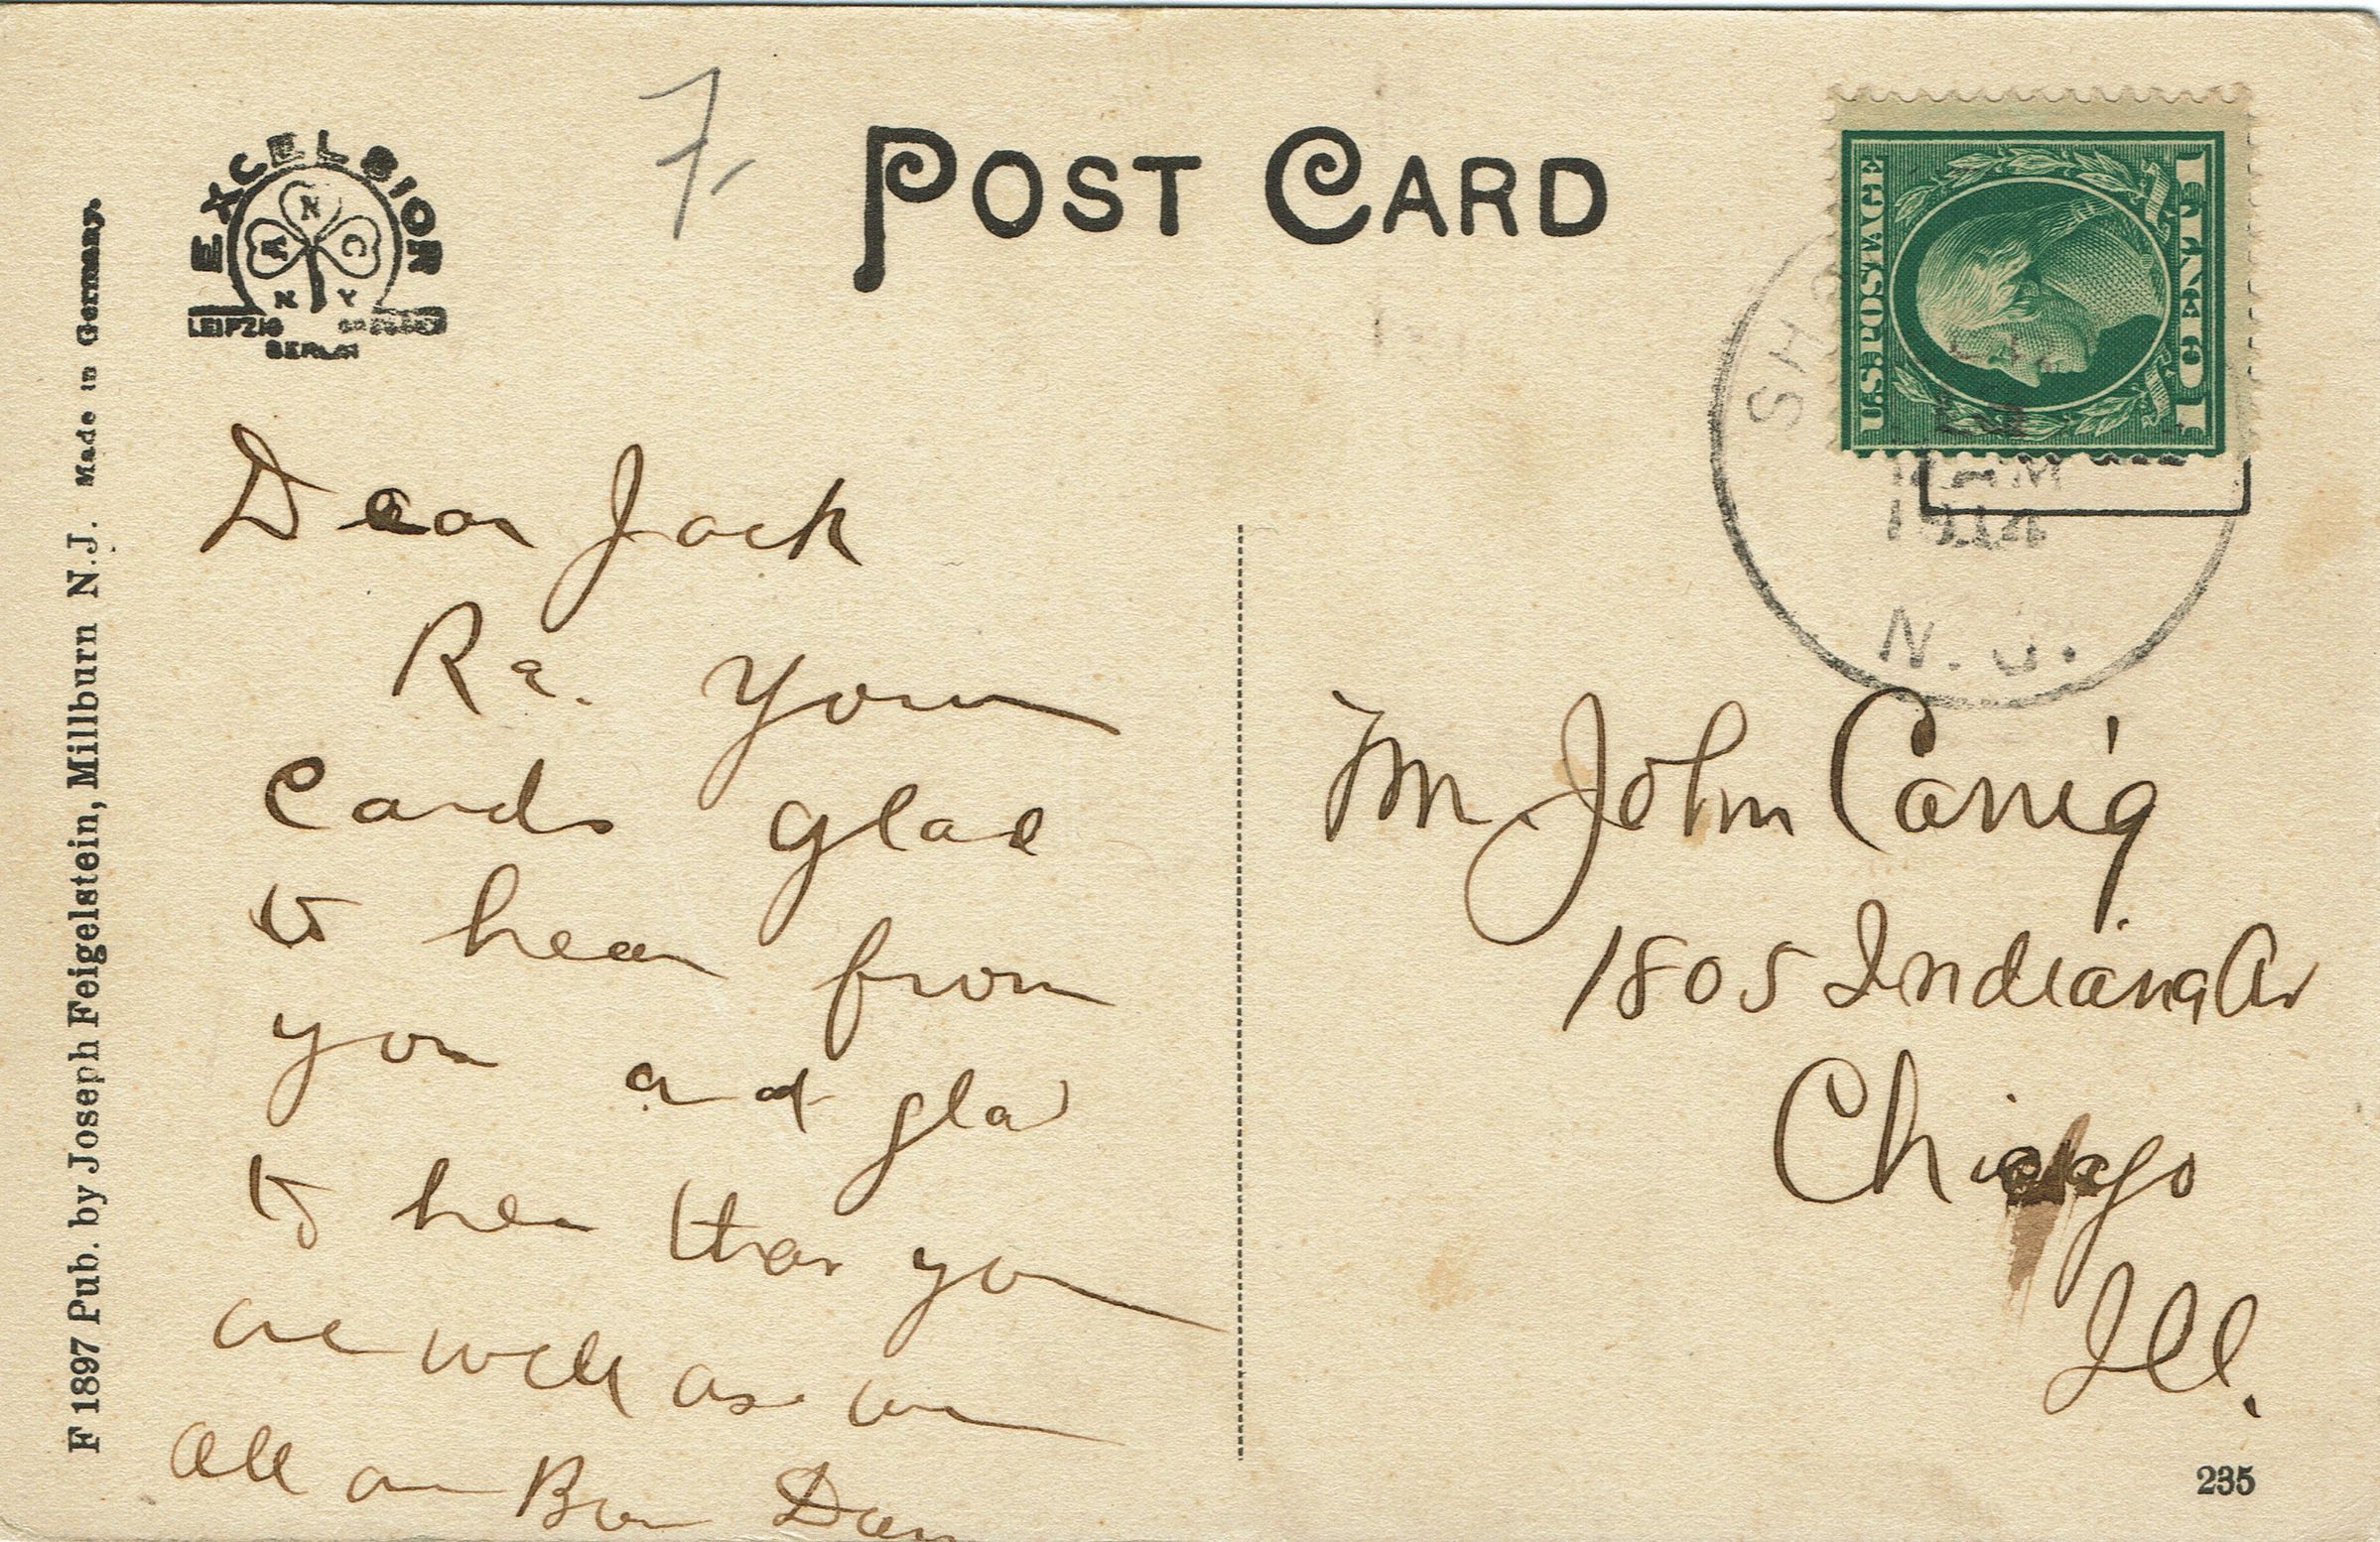 F 1897 Pub. by Joseph Feigelstein, Millburn N.J. Made in Germany.
EXCELSIOR
N
A C
N Y
LEIPZIG
BERLIN
7-
POST CARD
U.S. POSTAGE
1 CENT 1
AM
1914
N.J.
Dear Jack
Re. your
cards glad
to hear from
you and glad
to hear that you
are well as we
all are
Mr John Carrig
1805 Indiana Av
Chicago
Ill.
235